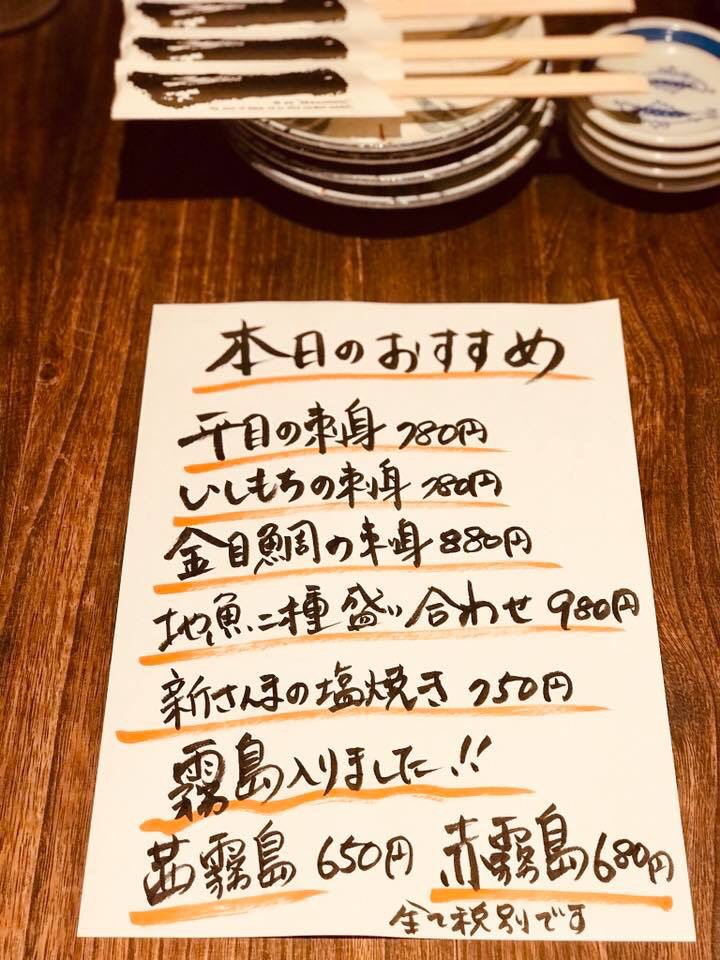 本日のおすすめ
平目の刺身 780円
いしもちの刺身 780円
金目鯛の刺身 880円
地魚二種盛り合わせ 980円
新さんまの塩焼き 750円
霧島入りました!!
茜霧島 650円 赤霧島 680円
全て税別です